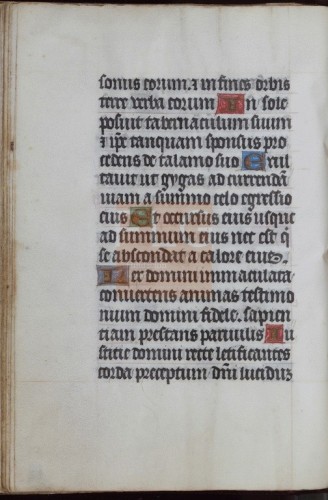 sonus eorum. ⁊ in fines orbis
terre verba eorum In sole
posuit tabernaculum suum
⁊ ip̄e tanquam sponsus pro
cedens de talamo suo Exul
tavit ut gygas ad currendā
viam a summo celo egressio
eius Et occursus eius usque
ad summum eius nec est q̄
se abscondat a calore eius.
Lex domini immaculata
convertens animas testimo
nium domini fidele. sapien
tiam prestans parvulis Iu
sticie domini recte letificantes
corda preceptum dn̄i lucidum